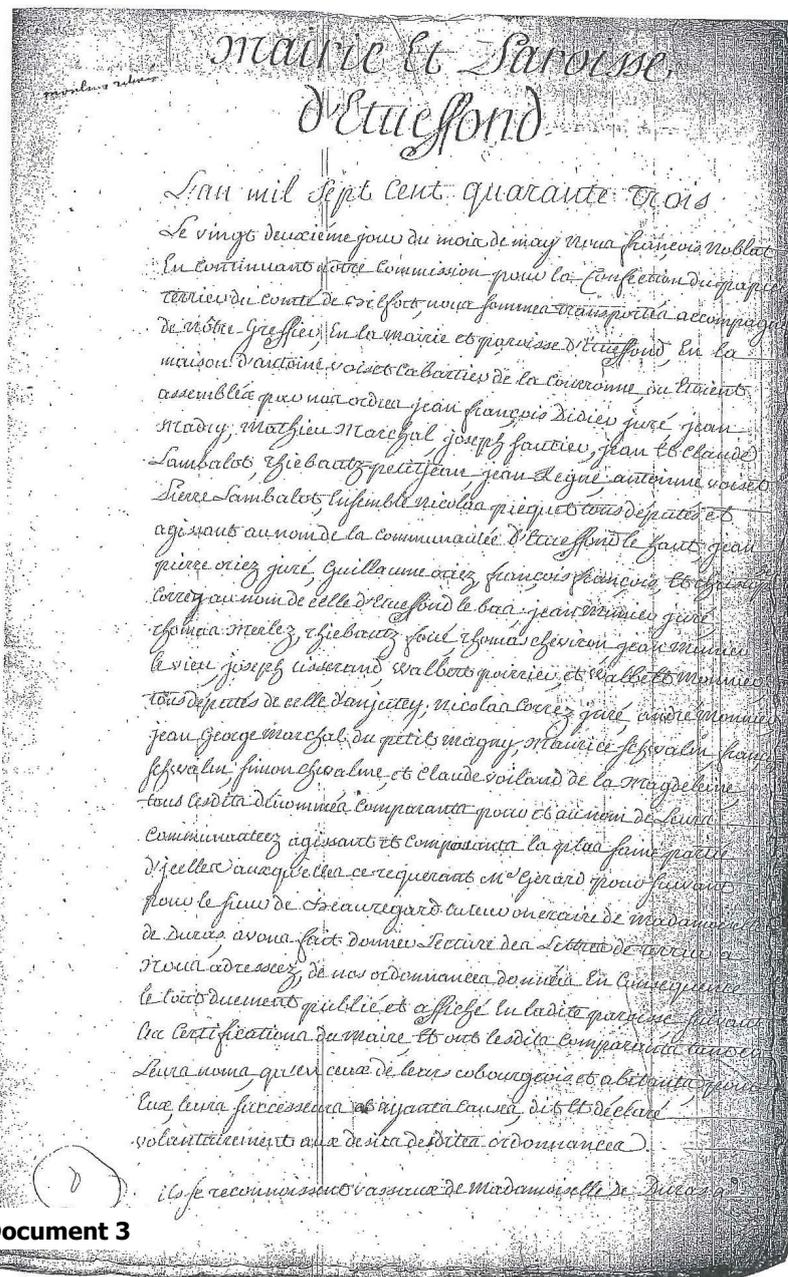 mairie et Paroisse
d'Etueffond
L'an mil sept cent quarante trois
Le vingt deuxieme jour du mois de may nous françois noblat
En continuant nôtre Commission pour la Confection du papier
terrier du comté de Belfort, nous sommes transportés accompagné
de nôtre Greffier, En la mairie et paroisse d'Etueffond, En la
maison d'antoine voiset Cabartier de la Couronne, ou Etoient
assemblés par nos ordres jean françois Didier juré, jean
Madru, Mathieu Marchal, joseph jean Et Claude
Lambalot, Thiebautz petitjean, jean antoinne voiset
Pierre Lambalot, Ensemble Nicolas tous députés et
agissant au nom de la communautée d'Etueffond le haut, jean
pierre juré, Guillaume françois françois, Et
au nom de celle d'Etueffond le bas, jean Munier juré,
thomas Thiebautz thomas chevron, jean Munier
le vieu, joseph tisserand, walbert poirrier, et walbert Monnier
tous députés de celle d'anjutey, Nicolas juré, andré Monnier
jean George Marchal du petit Magny, Maurice schvalin,
schvalin, simon et Claude voiland de la Magdeleine,
tous lesdits dénommés Comparants pour et au nom de Leurs
Communauteez agissant et composants la plus saine partie
d'jcelles auxquelles ce requerant Me Gerard poursuivant
pour le sieur de Beauregard tuteur oneraire de Madamoiselle
de Duras, avons fait donner Lecture des Lettres de terrier a
Nous adressez, de nos ordonnances données En Consequence
le tout duement publié et affiché En ladite paroisse suivant
les Certifications du Maire, Et ont lesdits Comparants tant en
Leurs noms, qu'en ceux de leurs cobourgeois et abitants, pour
Eux, leurs successeurs et ayants causes, dit Et déclaré
volontairement aux desirs desdites ordonnances
ils se reconnoissent vassaux de Madamoiselle de Duras
Document 3